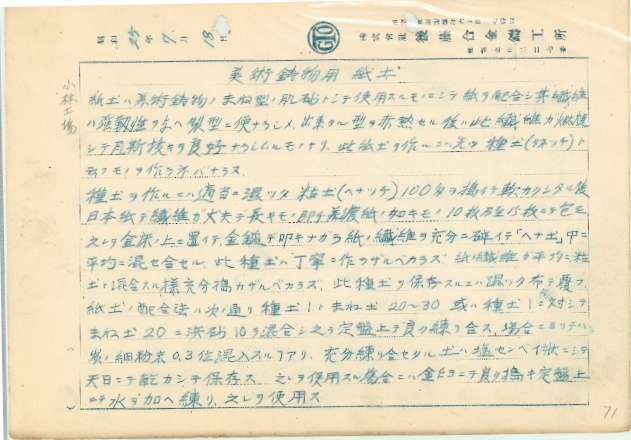 昭和25年7月18日
株式会社 後藤合金鋳工所
小林工場
美術鋳物用紙土
紙土ハ美術鋳物ノまね型ノ肌砂トシテ使用スルモノニシテ紙ヲ配合シ其繊維
ハ強靱性ヲ与ヘ製型ニ便ナラシメ、出来タル型ヲ赤熱セル後ハ此繊維ガ燃焼
シテ瓦斯抜キヲ良好ナラシムルモノナリ、此紙土ヲ作ルニハ先ヅ種土(タネツチ)ト
云フモノヲ作ラネバナラヌ
種土ヲ作ルニハ適当ニ湿ツタ粘土(ヘナツチ)100匁ヲ搗イテ軟カクシタル後
日本紙デ繊維ガ丈夫デ長キモノ即チ美濃紙ノ如キモノ10枚乃至15枚ニテ包ミ
之レヲ金床ノ上ニ置イテ、金鎚デ叩キナガラ紙ノ繊維ヲ充分ニ砕イテ「ヘナ土」中ニ
平均ニ混セ合セル、此種土ハ丁寧ニ作ラザルベカラズ、紙ノ繊維ガ平均ニ粘
土ト混合スル様充分搗カザルベカラズ、此種土ヲ保存スルニハ湿ツタ布デ覆フ、
紙土ノ配合法ハ次ノ通リ種土1、まね土20〜30 或ハ種土1ニ対シテ
まね土20ニ浜砂10ヲ混合シ之ヲ定盤上デ良ク練リ合ス、場合ニヨリテハ
炭ノ細粉末0.3位混入スル事アリ、充分練リ合セタル土ハ塩センベイ状ニシテ
天日ニテ乾カシテ保存ス、之レヲ使用スル場合ニハ金臼ニテ良ク搗キ定盤上
ニテ水ヲ加ヘ練リ、之レヲ使用ス
71